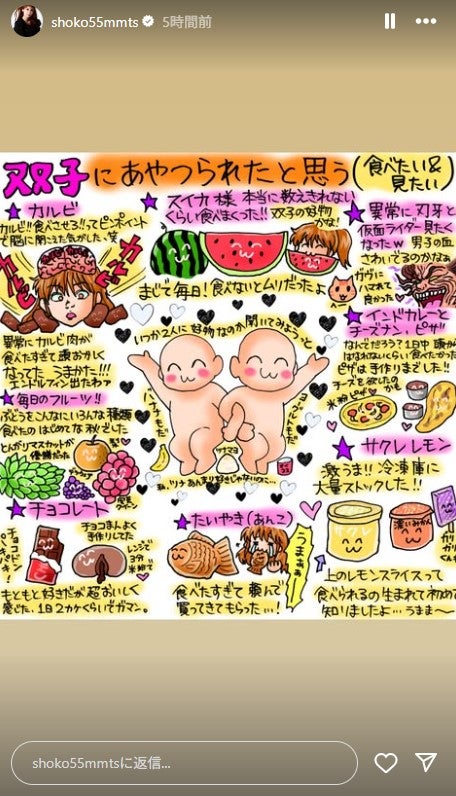 shoko55mmts 5時間前
双子にあやつられたと思う(食べたい&見たい)
★カルビ
カルビ!!食べさせろ!!ってピンポイント
で脳に聞こえた気がした。笑
異常にカルビ肉が
食べたすぎて頭おかしく
なってた うまかた!!!
エンドルフィン出たわァ
★スイカ様 本当に数えきれない
くらい食べまくった!!双子の好物
かな!
まじて毎日!食べないとムリだったよ
★異常に刃牙と
仮面ライダー見たく
なったw 男子の血
さわいでるのかなぁ
ガヴに
ハマれて
良かった
いつか2人に好物なのか聞いてみようっと
★インドカレーと
チーズナン、ピザ!!
ピザは手作りまでした!!
チーズを欲したの
米粉ピザ
★毎日のフルーツ!!
ぶどうをこんなにいろんな種類
食べたのはじめてな秋でした
とんがりマスカットが
優勝だった
梨
バナナもだ
ツナマヨ
★サクレレモン
激うま!!冷凍庫に
大量ストックした!!
濃いみかん
上のレモンスライスって
食べられるの生まれて初めて
知りましたよ…うまま〜
★チョコレート
チョコまんよく
手作りしてた
レンジで
3分
米粉で
もともと好きだが超おいしく
感じた。1日2カケくらいでガマン。
★たいやき(あんこ)
うまぁぁ
食べたすぎて 頼んで
買ってきてもらった…!
shoko55mmtsに返信...